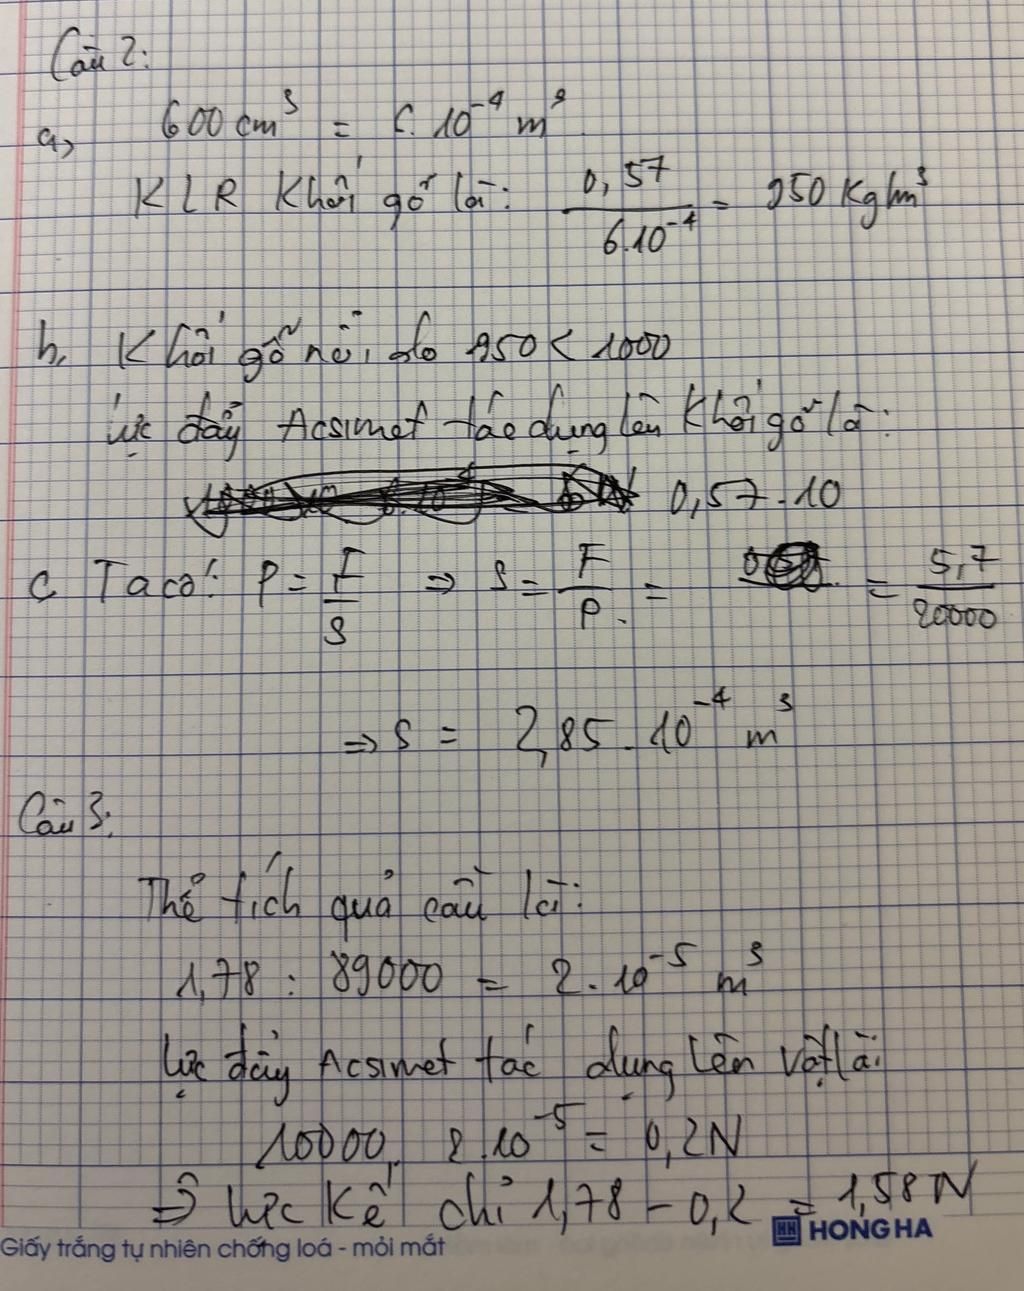 Câu 2:
a, 600 cm³ = 6.10⁻⁴ m³
KLR Khối gỗ là: 0,57 / 6.10⁻⁴ = 950 Kg/m³
b, Khối gỗ nổi, do 950 < 1000
lực đẩy Acsimet tác dụng lên Khối gỗ là:
0,57.10
c. Ta có: p = F/S => S = F/p = = 5,7/20000
=> S = 2,85.10⁻⁴ m³
Câu 3:
Thể tích quả cầu là:
1,78 : 89000 = 2.10⁻⁵ m³
lực đẩy Acsimet tác dụng lên vật là:
10000. 2.10⁻⁵ = 0,2N
=> lực Kế chỉ 1,78 - 0,2 = 1,58 N
HONG HA
Giấy trắng tự nhiên chống loá - mỏi mắt